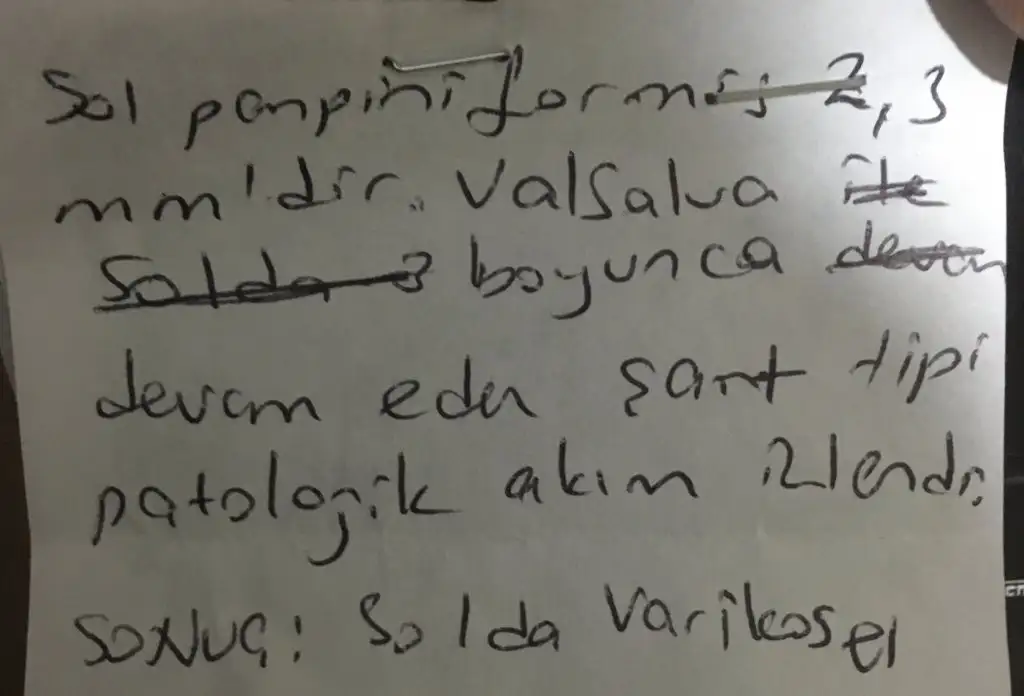 Sol panpiniformis 2,3
mm'dir. Valsalva ile
Solda 3 boyunca devam
devam eden şant tipi
patolojik akım izlendi.
SONUÇ: Solda Varikosel